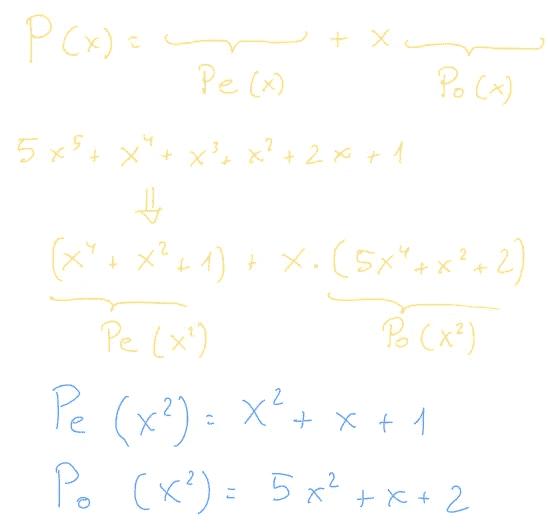 P(x) = ⏟ + x ⏟
Pe(x) Po(x)
5x⁵ + x⁴ + x³ + x² + 2x + 1
⇓
(x⁴ + x² + 1) + x · (5x⁴ + x² + 2)
Pe(x²) Po(x²)
Pe(x²) = x² + x + 1
Po(x²) = 5x² + x + 2